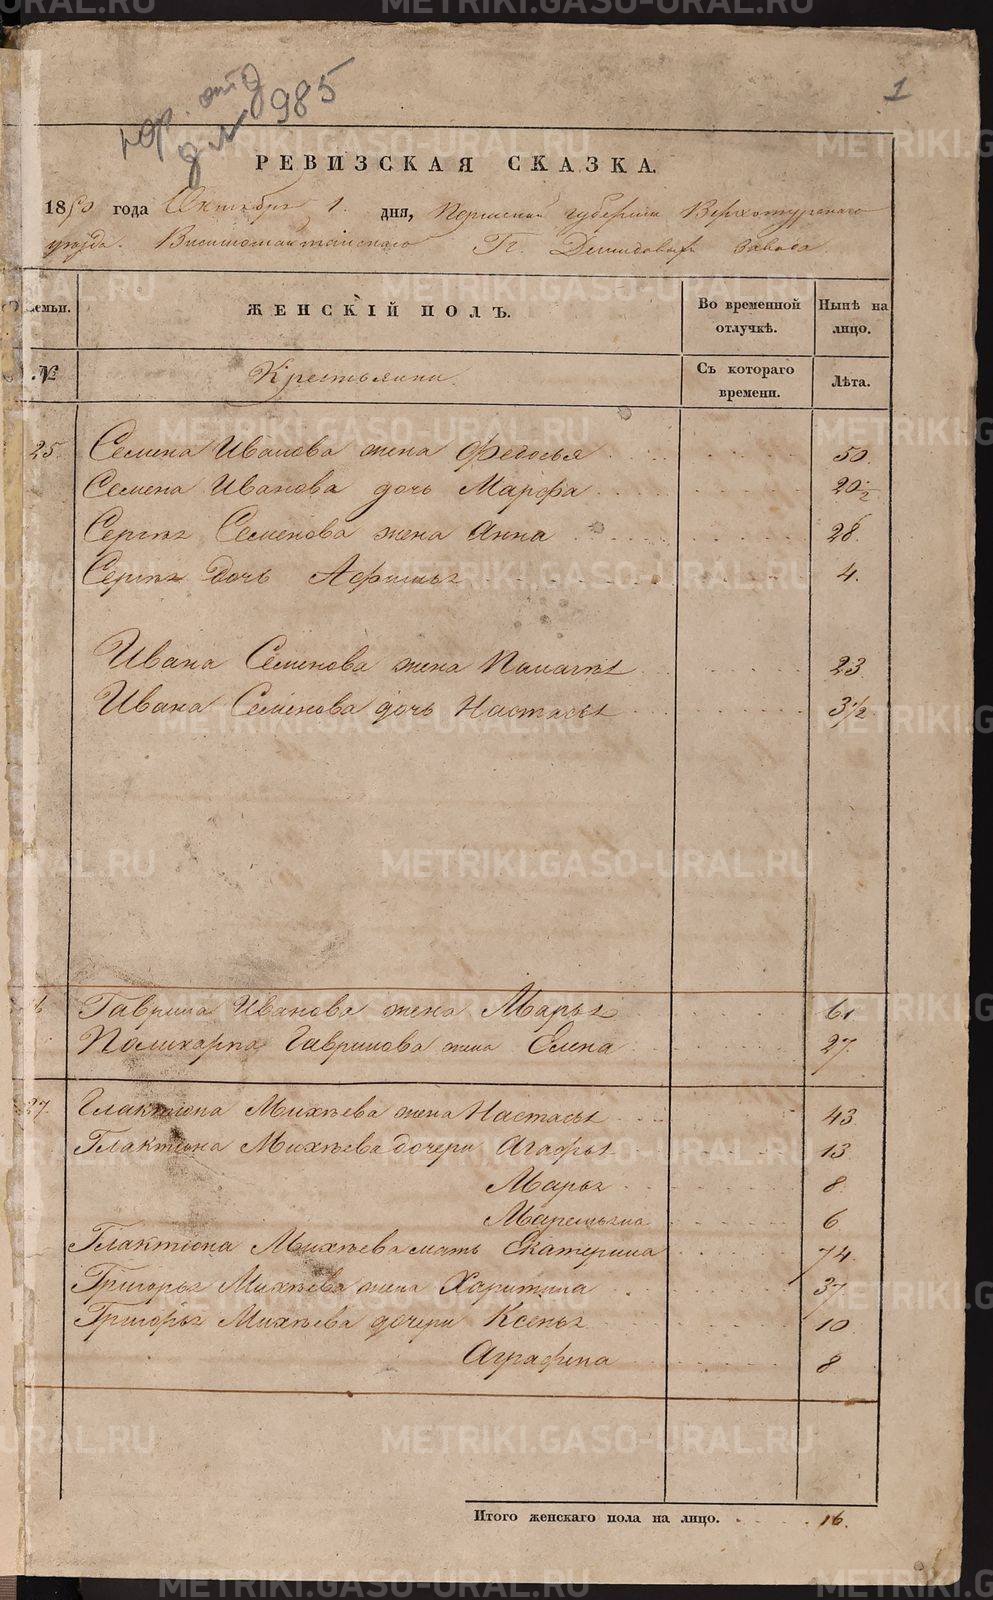 1
985
РЕВИЗСКАЯ СКАЗКА.
1850 года Октября 1. дня, Пермской губернии Верхотурскаго
уезда. Висимошайтанскаго Гг. Демидовых завода
Семьи. ЖЕНСКІЙ ПОЛЪ. Во временной отлучкѣ. Нынѣ на лицо.
№ Крестьянии. Съ котораго времени. Лѣта.
25. Семена Иванова жена Федосья 50.
Семена Иванова дочь Марфа 20 1/2
Сергѣя Семенова жена Анна 28.
Сергѣя дочь Афимья 4.
Ивана Семенова жена Палагѣя 23.
Ивана Семенова дочь Настасья 3 1/2
6 Гаврила Иванова жена Марья 61
Поликарпа Гаврилова жена Елена 27.
27. Глактiона Михѣева жена Настасья 43.
Глактiона Михѣева дочери Агафья 13
Марья 8.
Маремьяна 6.
Глактiона Михѣева мать Екатерина 74.
Григорья Михѣева жена Харитина 37
Григорья Михѣева дочери Ксенья 10
Аграфена 8
Итого женскаго пола на лицо. 16.
METRIKI.GASO-URAL.RU